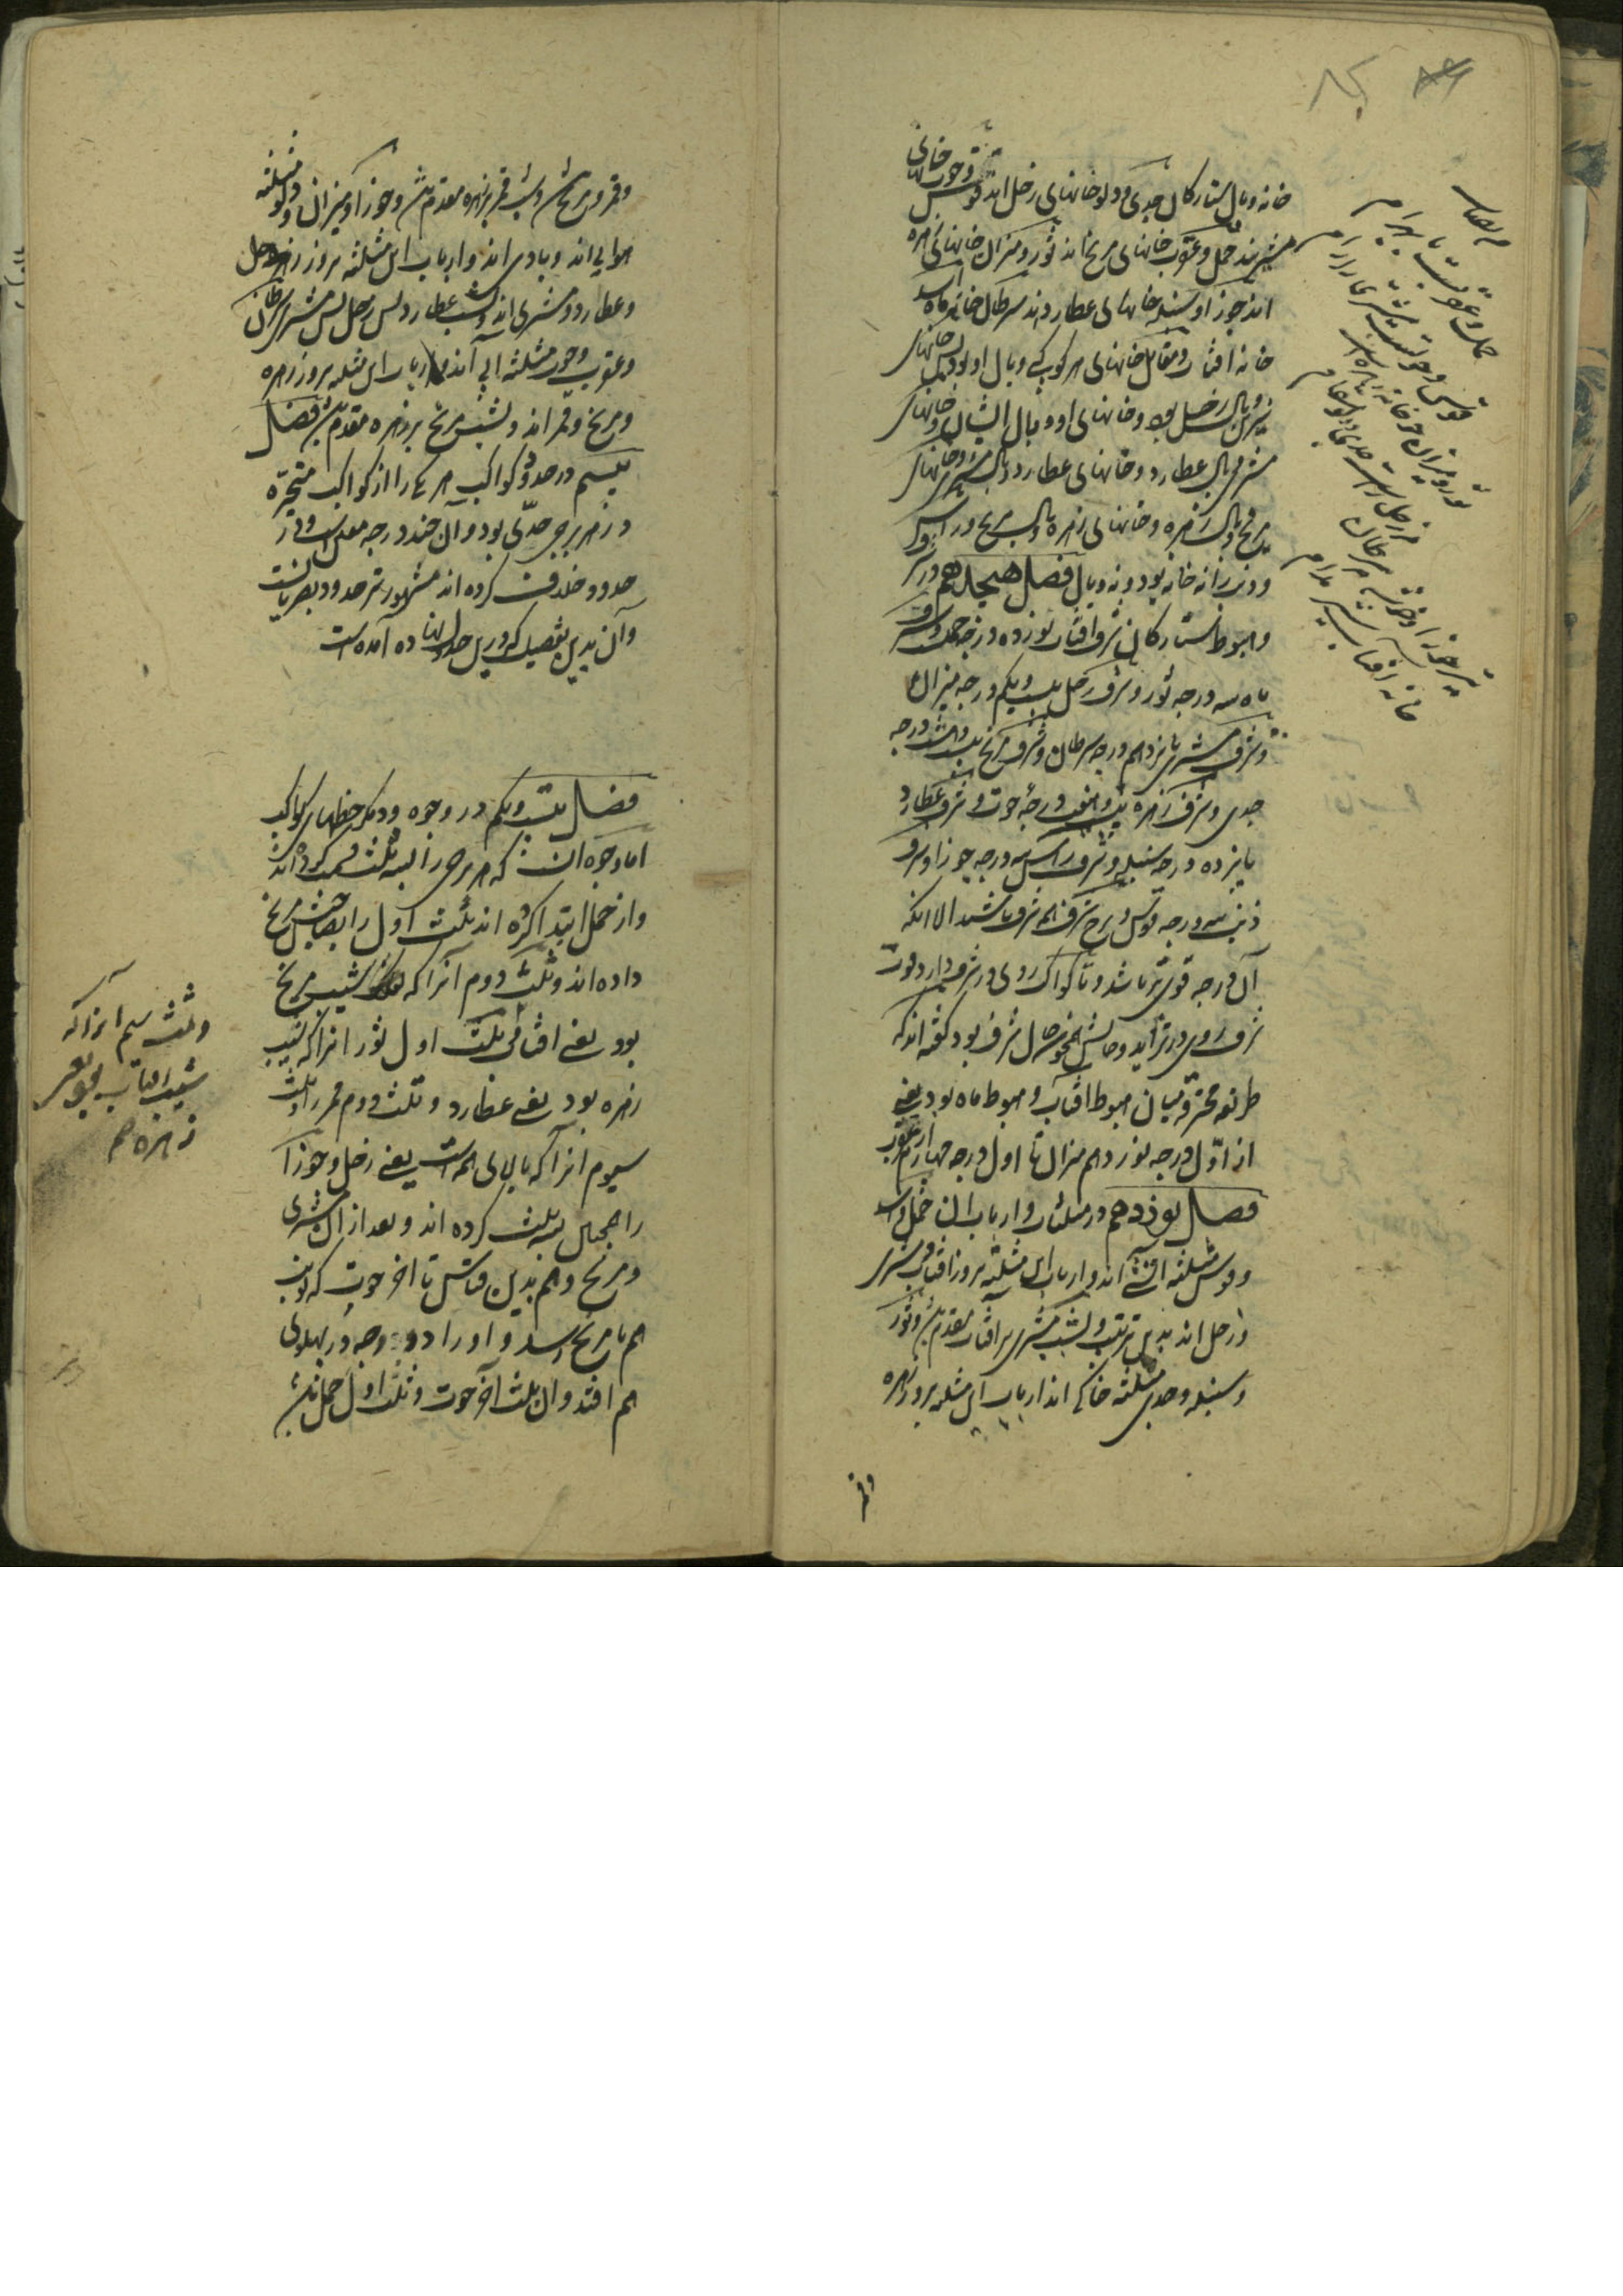 خانه و وبال ستارکان جدی و دلو خانهای زحل اند قوس و حوت خانهای
مشتریند حمل و عقرب خانهای مریخ اند ثور و میزان خانهای زهره
اند جوزا و سنبله خانهای عطارد اند سرطان خانه ماه اسد
خانه افتاب و مقابل خانهای هر کوکبی وبال او بود پس خانهای
نیرین وبال زحل بود و خانهای او وبال ایشان و خانهای
مشتری وبال عطارد و خانهای عطارد وبال مشتری و خانهای
مریخ وبال زهره و خانهای زهره وبال مریخ و راس
و ذنب را نه خانه بود و نه وبال فصل هیجدهم در شرف
و هبوط ستارکان شرف افتاب نوزده درجه حمل و شرف
ماه سه درجه ثور و شرف زحل بیست و یکم درجه میزان
و شرف مشتری پانزدهم درجه سرطان و شرف مریخ بیست و هشت درجه
جدی و شرف زهره بیست و هفت درجه حوت و شرف عطارد
پانزده درجه سنبله و شرف راس سه درجه جوزا و شرف
ذنب سه درجه قوس و برج شرف هم شرف باشد الا انکه
آن درجه قوی تر باشد و تا کواکب روی در شرف دارد قوت
شرف روی در تزاید و چون بگذرد حال شرف بود کفته اند که
طریقه محترقه میان هبوط افتاب و هبوط ماه بود یعنی
از اوّل درجه نوزدهم میزان تا اول درجه چهارم از عقرب
فصل نوزدهم در مثلثات و ارباب ان حمل و اسد
و قوس مثلثه اتشی اند و ارباب این مثلثه بروز افتاب و مشتری
و زحل اند بدین ترتیب و بشب مشتری بر افتاب مقدم شود و ثور
و سنبله و جدی مثلثه خاکی اند ارباب این مثلثه بروز زهره
و قمر
حمل و عقربست با بهرام
قوس و حوتست مشتری را رام
ثور و میزان چو خانه زهره است
مر زحل راست جدی و دلو مقام
تیر جوزا و خوشه مه سرطان
خانه افتاب شیر مدام
و قمر و مریخ اند و بشب قمر بر زهره مقدم شود و جوزا و میزان و دلو مثلثه
هوایی اند و بادی اند و ارباب این مثلثه بروز زحل
و عطارد و مشتری اند و بشب عطارد پس زحل پس مشتری سرطان
و عقرب و حوت مثلثه ابی اند و ارباب این مثلثه بروز زهره
و مریخ و قمر اند و بشب مریخ بر زهره مقدم شود فصل
بیستم در حدود کواکب هر یکی را از کواکب متحیّره
در هر برجی حدّی بود و آن چند درجه معین است و در
حدود خلاف کرده اند مشهورتر حدود مصریانست
و آن بدین تفصیل که درین جدول نهاده آمده است
فصل بیست و یکم در وجوه و دیکر حظهای کواکب
اما وجوه انست که هر برجی را بسه ثلث قسمت کرده اند
و از حمل ابتدا کرده اند ثلث اول را بصاحبش مریخ
داده اند و ثلث دوم آنرا که شیب مریخ
بود یعنی افتاب ثلث اول ثور انرا که شیب
زهره بود یعنی عطارد و ثلث دوم قمر را و ثلث
سیوم انرا که بالای همه است یعنی زحل و جوزا
را همچنین بسه ثلث کرده اند و بعد از ان مشتری
و مریخ و هم بدین قیاس تا اخر حوت که نوبت
هم با مریخ رسد و او را دو وجه در پهلوی
هم افتد و ان ثلث آخر حوت و ثلث اول حمل باشد
و ثلث سیم انرا که
شیب افتاب بود یعنی
زهره